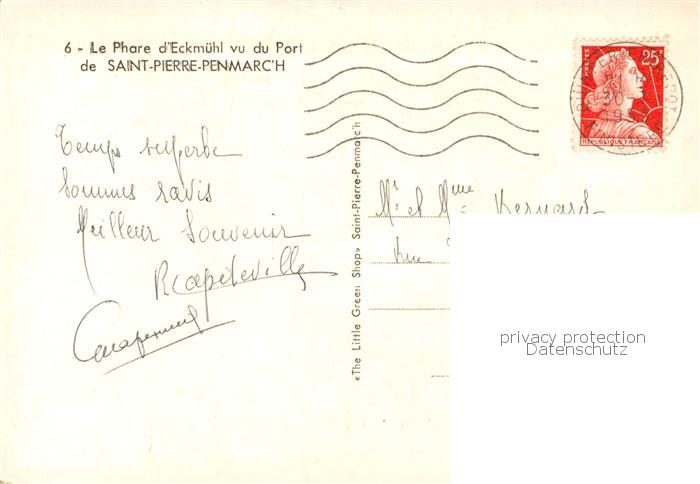 6 - Le Phare d'Eckmühl vu du Port
de SAINT-PIERRE-PENMARC'H
25F
POSTES
REPUBLIQUE FRANÇAISE
Temps superbe
Sommes ravis
Meilleur Souvenir
«The Little Green Shop» Saint-Pierre-Penmarc'h
Mr et Mme
Rue
privacy protection
Datenschutz